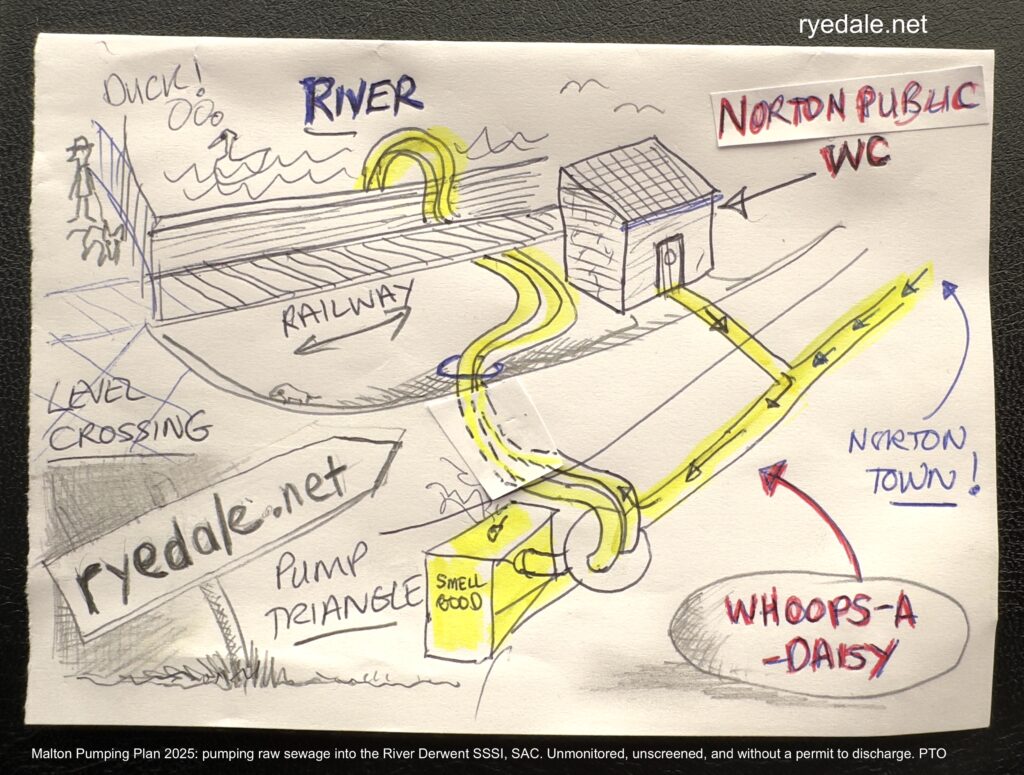 ryedale.net
DUCK!
RIVER
NORTON PUBLIC
WC
RAILWAY
LEVEL
CROSSING
NORTON
TOWN!
ryedale.net
PUMP
TRIANGLE
SMELL
GOOD
WHOOPS-A
-DAISY
Malton Pumping Plan 2025: pumping raw sewage into the River Derwent SSSI, SAC. Unmonitored, unscreened, and without a permit to discharge. PTO